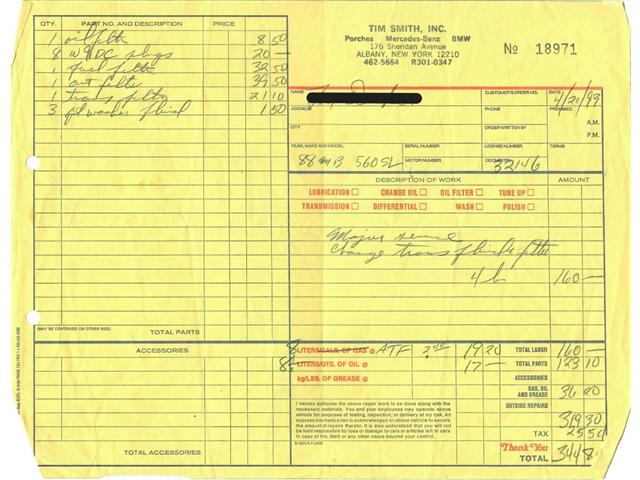 QTY. PART NO. AND DESCRIPTION PRICE
1 oil filter 8 50
8 W9DC plugs 20 —
1 fuel filter 32 50
1 air filter 39 50
1 trans filter 21 10
3 pt washer fluid 1 50
(MAY BE CONTINUED ON OTHER SIDE)
TOTAL PARTS
ACCESSORIES
TOTAL ACCESSORIES
TIM SMITH, INC.
Porches Mercedes-Benz BMW
176 Sheridan Avenue
ALBANY, NEW YORK 12210
462-5664 R301-0347
No 18971
NAME CUSTOMER'S ORDER NO. DATE 4/20/99
ADDRESS PHONE PROMISED A.M.
CITY ORDER WRITTEN BY P.M.
YEAR, MAKE AND MODEL SERIAL NUMBER LICENSE NUMBER TERMS
88 MB 560SL MOTOR NUMBER 32146
DESCRIPTION OF WORK AMOUNT
LUBRICATION CHANGE OIL OIL FILTER TUNE UP
TRANSMISSION DIFFERENTIAL WASH POLISH
Major
Change trans fluid & filter
4 h 160 —
8 LITERS/GALS. OF GAS @ ATF 19 20 TOTAL LABOR 160 —
8 LITERS/QTS. OF OIL @ 17 — TOTAL PARTS 123 10
kg/LBS. OF GREASE @ ACCESSORIES
GAS, OIL AND GREASE 36 20
OUTSIDE REPAIRS
I hereby authorize the above repair work to be done along with the
necessary materials. You and your employees may operate above
vehicle for purposes of testing, inspection, or delivery at my risk. An
express mechanics lien is acknowledged on above vehicle to secure
the amount of repairs thereto. It is also understood that you will not
be held responsible for loss or damage to cars or articles left in cars
in case of fire, theft or any other cause beyond your control.
319 30
TAX 25 54
SIGNATURE
Thank You
TOTAL 344 8